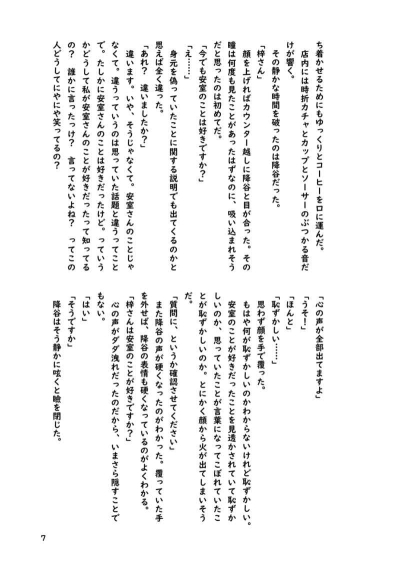 ち着かせるためにもゆっくりとコーヒーを口に運んだ。
店内には時折カチャとカップとソーサーのぶつかる音だ
けが響く。
その静かな時間を破ったのは降谷だった。
「梓さん」
顔を上げればカウンター越しに降谷と目が合った。その
瞳は何度も見たことがあったはずなのに、吸い込まれそう
だと思ったのは初めてだ。
「今でも安室のことは好きですか？」
「え……」
身元を偽っていたことに関する説明でも出てくるのかと
思えば全く違った。
「あれ？　違いましたか？」
違います。いや、そうじゃなくて。安室さんのことじゃ
なくて。違うっていうのは思っていた話題と違うってこと
で。たしかに安室さんのことは好きだったけど。っていう
かどうして私が安室さんのことが好きだったって知ってる
の？　誰かに言ったっけ？　言ってないよね？　ってこの
人どうしてにやにや笑ってるの？
「心の声が全部出てますよ」
「うそ！」
「ほんと」
「恥ずかしい……」
思わず顔を手で覆った。
もはや何が恥ずかしいのかわからないけれど恥ずかしい。
安室のことが好きだったことを見透かされていて恥ずか
しいのか、思っていたことが言葉になってこぼれていたこ
とが恥ずかしいのか。とにかく顔から火が出てしまいそう
だ。
「質問に、というか確認させてください」
また降谷の声が硬くなったのがわかった。覆っていた手
を外せば、降谷の表情も硬くなっているのがよくわかる。
「梓さんは安室のことが好きですか？」
心の声がダダ洩れだったのだから、いまさら隠すことで
もない。
「はい」
「そうですか」
降谷はそう静かに呟くと瞼を閉じた。
7